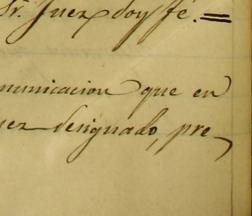 Sr. Juez doy fé.=
municacion que en
uez designado, pre-